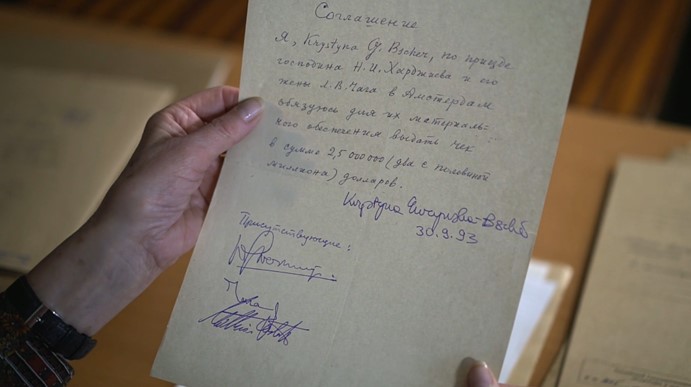 Соглашение
Я, Krystyna G. Bscher, по приезде
господина Н.И. Харджиева и его
жены Л.В. Чага в Амстердам
обязуюсь для их материаль-
ного обеспечения выдать чек
в сумме 2,5 000 000 (два с половиной
миллиона) долларов.
Krystyna
30.9.93
Присутствующие: